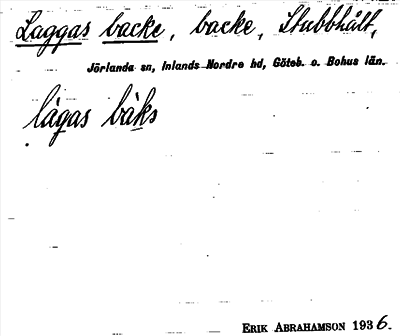 Laggas backe, backe, Stubbhålt,
Jörlanda sn, Inlands Nordre hd, Göteb. o. Bohus län.
lágas bàks
ERIK ABRAHAMSON 1936.